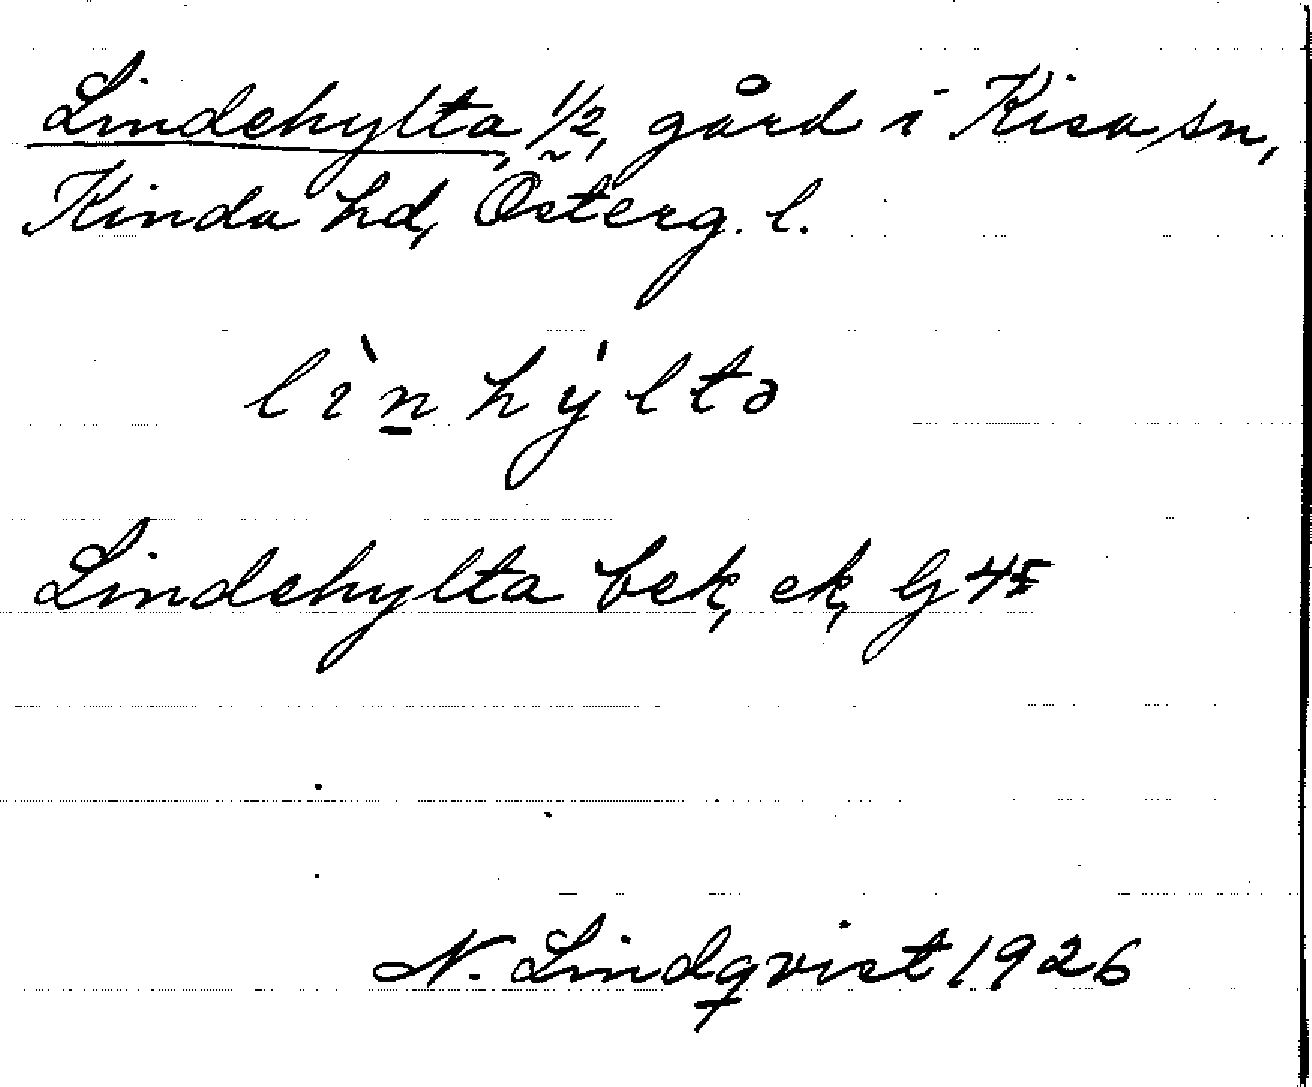 Lindehylta, 1/2, gård i Kisa sn,
Kinda hd, Österg. l.
lìn̲hýltə
Lindehylta bek, ek, G 45
N. Lindqvist 1926